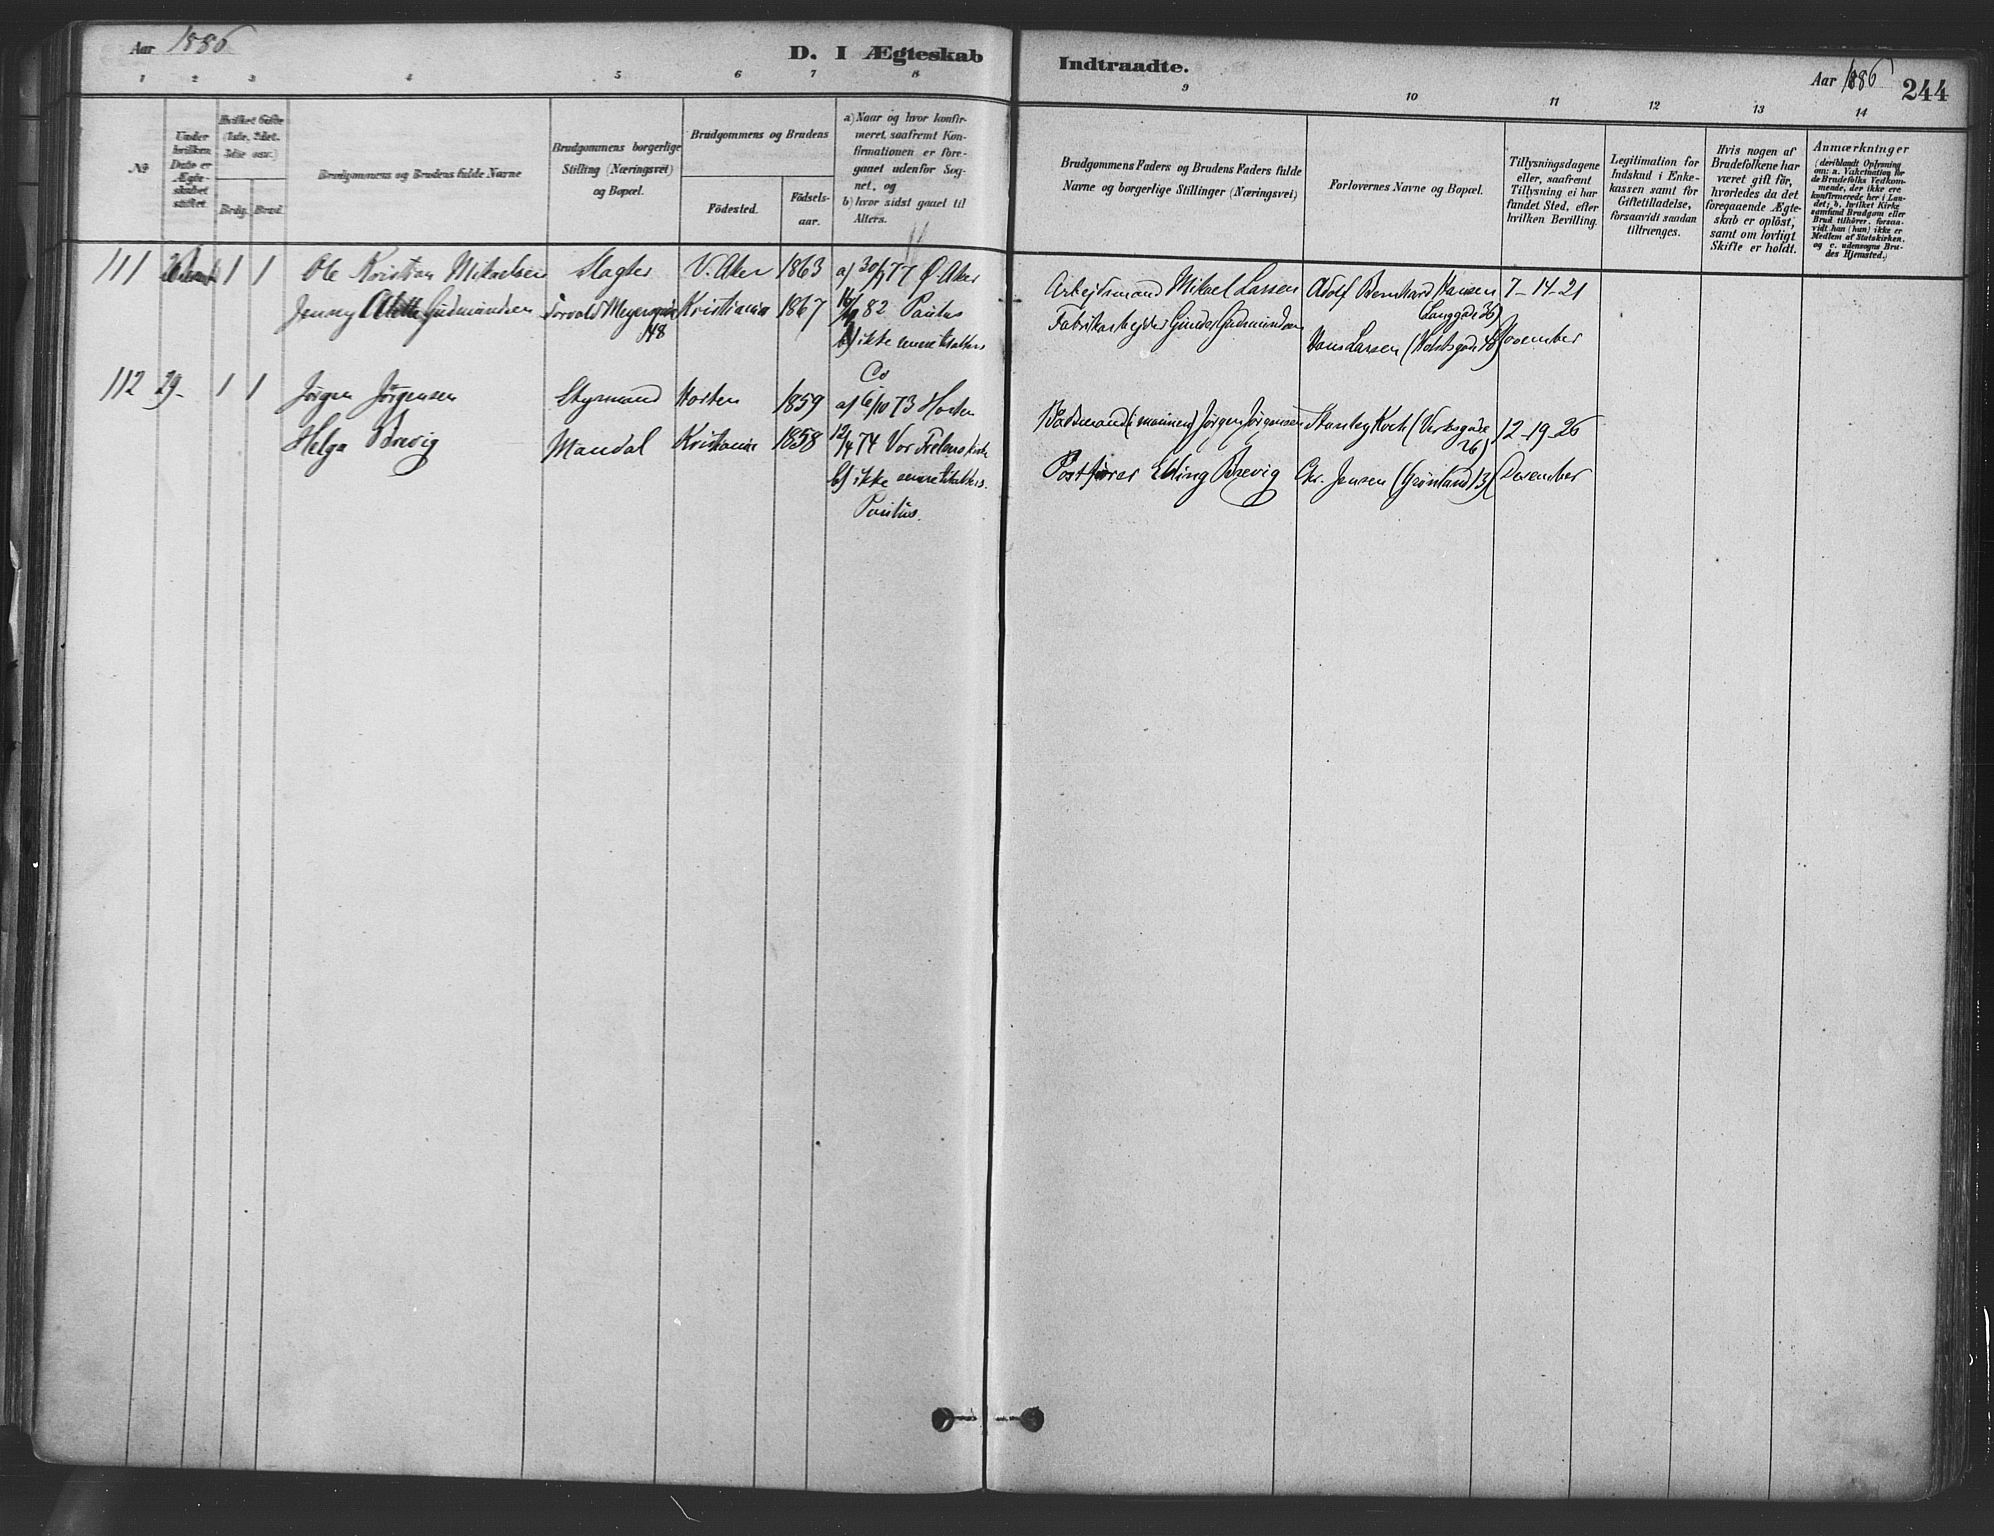 Aar 1886
D. I Ægteskab
Indtraadte.
Aar 1886
244
1 2 3 4 5 6 7 8
9 10 11 12 13 14
No
Under
hvilken
Dato er
Ægte-
skabet
stiftet.
Hvilket Gifte
(1ste, 2det,
3die osv.)
Brdg. Brud.
Brudgommens og Brudens fulde Navne
Brudgommens borgerlige
Stilling (Næringsvei)
og Bopæl.
Brudgommens og Brudens
Födested.
Födsels-
aar.
a) Naar og hvor konfir-
meret, saafremt Kon-
firmationen er fore-
gaaet udenfor Sog-
net, og
b) hvor sidst gaaet til
Alters.
Brudgommens Faders og Brudens Faders fulde
Navne og borgerlige Stillinger (Næringsvei)
Forlovernes Navne og Bopæl.
Tillysningsdagene
eller, saafremt
Tillysning ei har
fundet Sted, efter
hvilken Bevilling.
Legitimation for
Indskud i Enke-
kassen samt for
Giftetilladelse,
forsaavidt saadan
tiltrænges.
Hvis nogen af
Brudefolkene har
været gift för,
hvorledes da det
foregaaende Ægte-
skab er oplöst,
samt om lovligt
Skifte er holdt.
Anmærkninger
(deriblandt Oplysning
om: a. Vakcination for
de Brudefolks Vedkom-
mende, der ikke ere
konfirmerede her i Lan-
det; b. hvilket Kirke-
samfund Brudgom eller
Brud tilhører, forsaa-
vidt han (hun) ikke er
Medlem af Statskirken,
og c. udensogns Bru-
des Hjemsted.)
111 1 1 Ole Kristian Mikaelsen Slagter V. Aker 1863 a) 30/9 77 Ø. Aker
Jenny Alette Gudmundsen Torvald Meyersgade Kristiania 1867 82 Paulus
48
b) ikke
Arbejdsmand Mikael Lassen Adolf Bernhard Hansen 7–14–21
Langgd. 36)
Fabrikarbejder Gudmundsen
Hans Lassen (Holstsgade 48) November
Co
112 29. 1 1 Jørgen Jørgensen Styrmand Horten 1859 a) 6/10 73 Horten
Helga Brevig Mandal Kristiania 1858 12/4 74 Vor Frelsers Kirke
b) ikke
Paulus.
Baadsmand (i marinen) Jørgen Jørgensen Stanley Koch (Verksgade 12–19–26
26)
Postfører Elling Brevig Chr. Jensen (Grønland 13) December